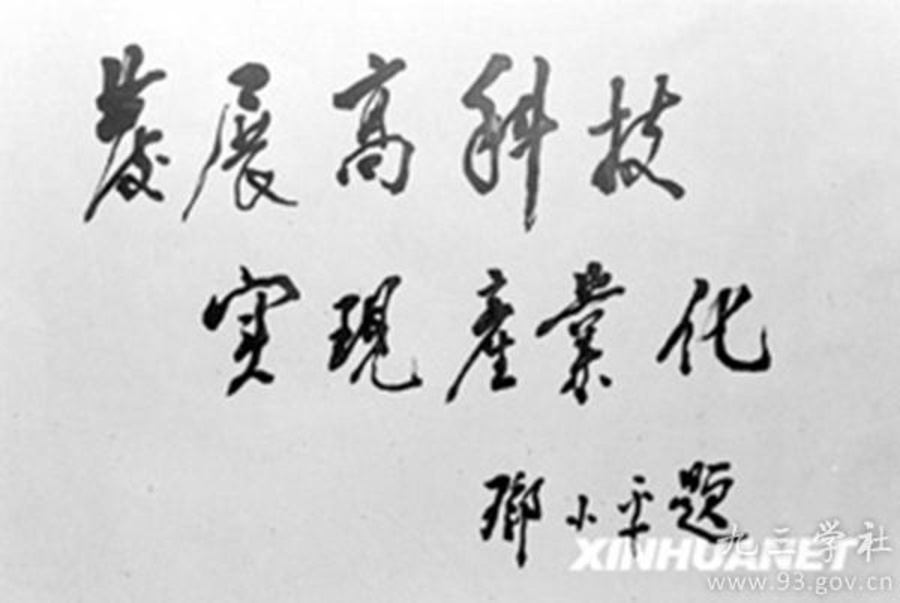 發展高科技
实現產業化
鄧小平题
XINHUANET
九三学社
www.93.gov.cn